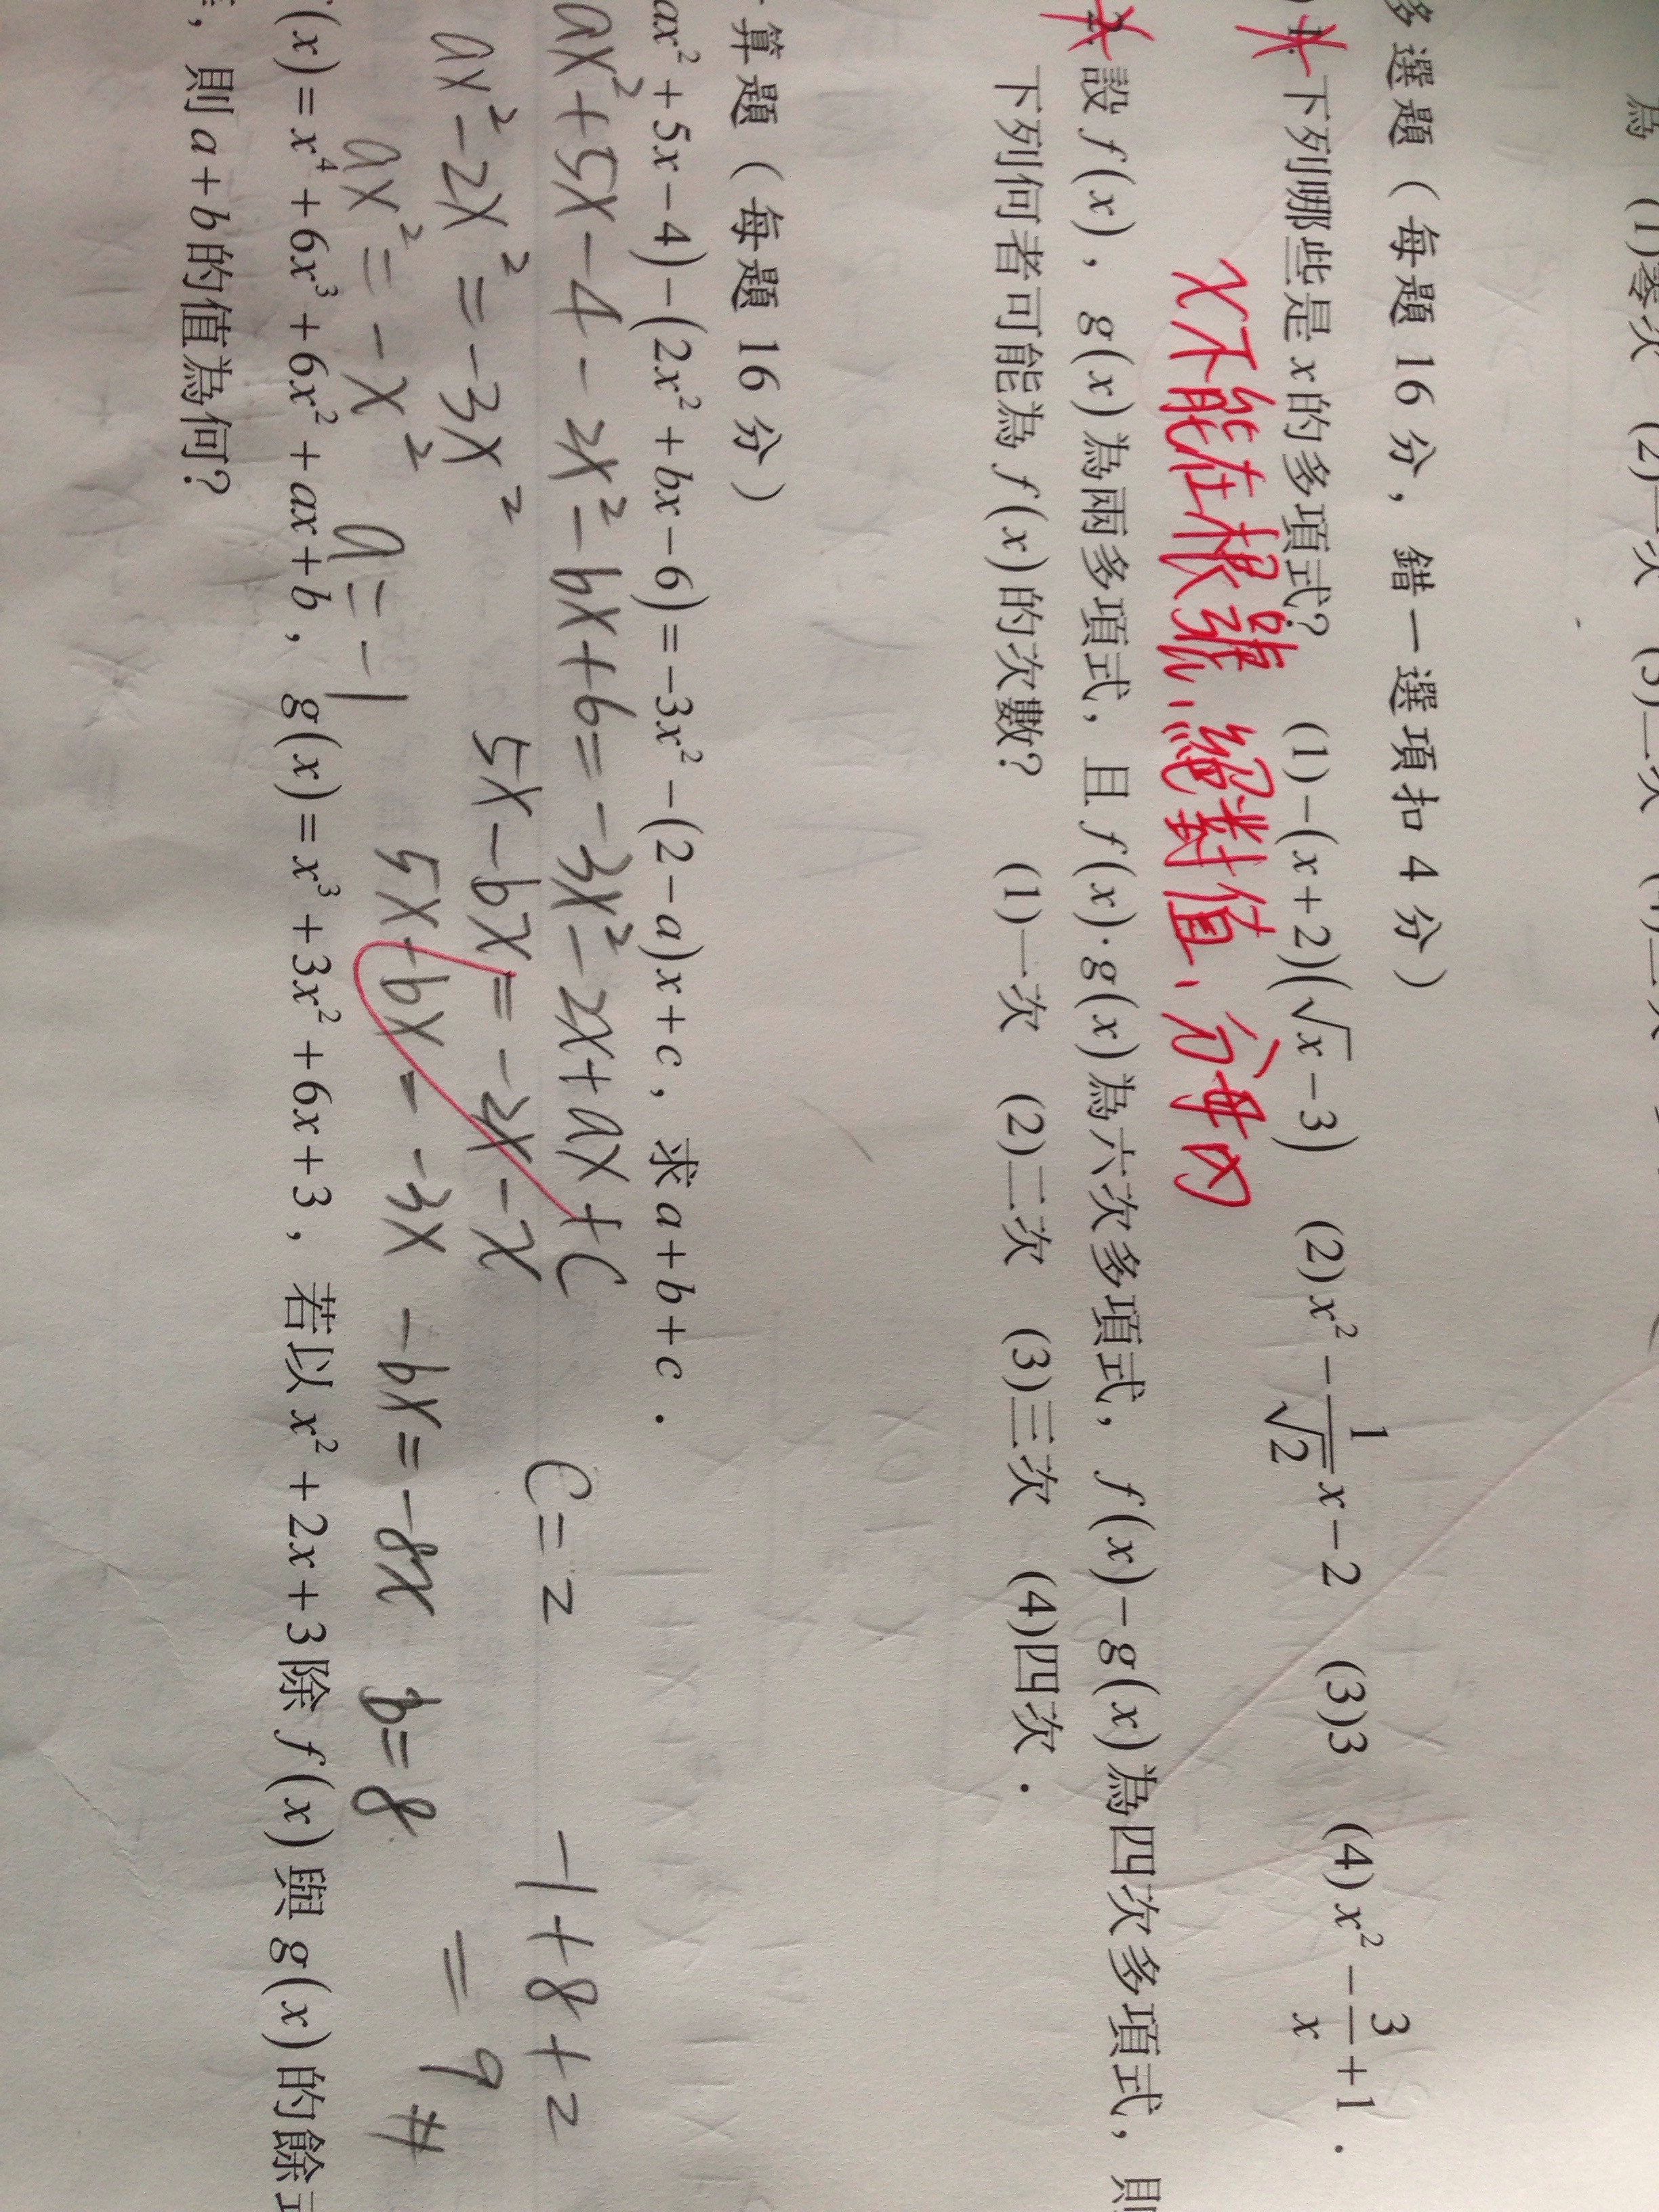 為 (1)零次 (2)一次 (3)二次
多選題（每題 16 分，錯一選項扣 4 分）
1. 下列哪些是 x 的多項式？ (1) −(x+2)(√x−3) (2) x² − 1/√2 x − 2 (3) 3 (4) x² − 3/x + 1．
x不能在根號、絕對值、分母內
2. 設 f(x)，g(x) 為兩多項式，且 f(x)·g(x) 為六次多項式，f(x)−g(x) 為四次多項式，則
下列何者可能為 f(x) 的次數？ (1)一次 (2)二次 (3)三次 (4)四次．
算題（每題 16 分）
ax²+5x−4)−(2x²+bx−6)=−3x²−(2−a)x+c，求 a+b+c．
ax²+5x−4−2x²−bx+6=−3x²−2x+ax+c
c=2
−1+8+2
ax²−2x²=−3x²
5x−bx=−2x−x
=9#
ax²=−x²
a=−1
5x−bx=−3x
−bx=−8x
b=8
(x)=x⁴+6x³+6x²+ax+b，g(x)=x³+3x²+6x+3，若以 x²+2x+3 除 f(x) 與 g(x) 的餘式
，則 a+b 的值為何？